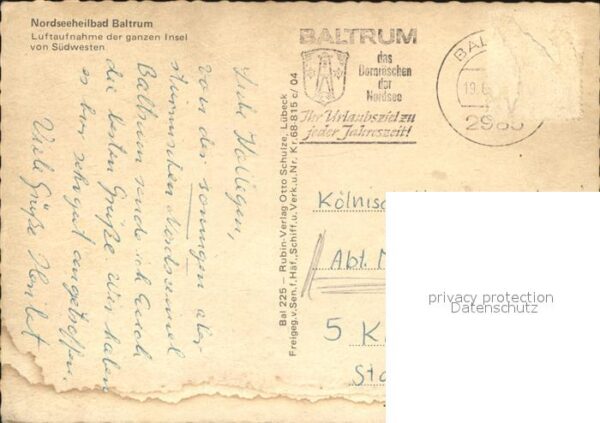 Nordseeheilbad Baltrum
Luftaufnahme der ganzen Insel
von Südwesten
Liebe Kollegen,
von der sonnigen aber
stürmischen Nordseeinsel
Baltrum sende ich Euch
die besten Grüße. Wir haben
es hier sehr gut angetroffen.
Viele Grüße
Bal 225 — Rubin-Verlag Otto Schulze, Lübeck
Freigeg.v.Sen.f.Häf.,Schiff.u.Verk.u.Nr.Kr.68-815 c/04
BALTRUM
das
Dornröschen
der
Nordsee
Ihr Urlaubsziel zu
jeder Jahreszeit!
BAL
19.6
298
Kölnisc
Abt.
5 K
Sta
privacy protection
Datenschutz